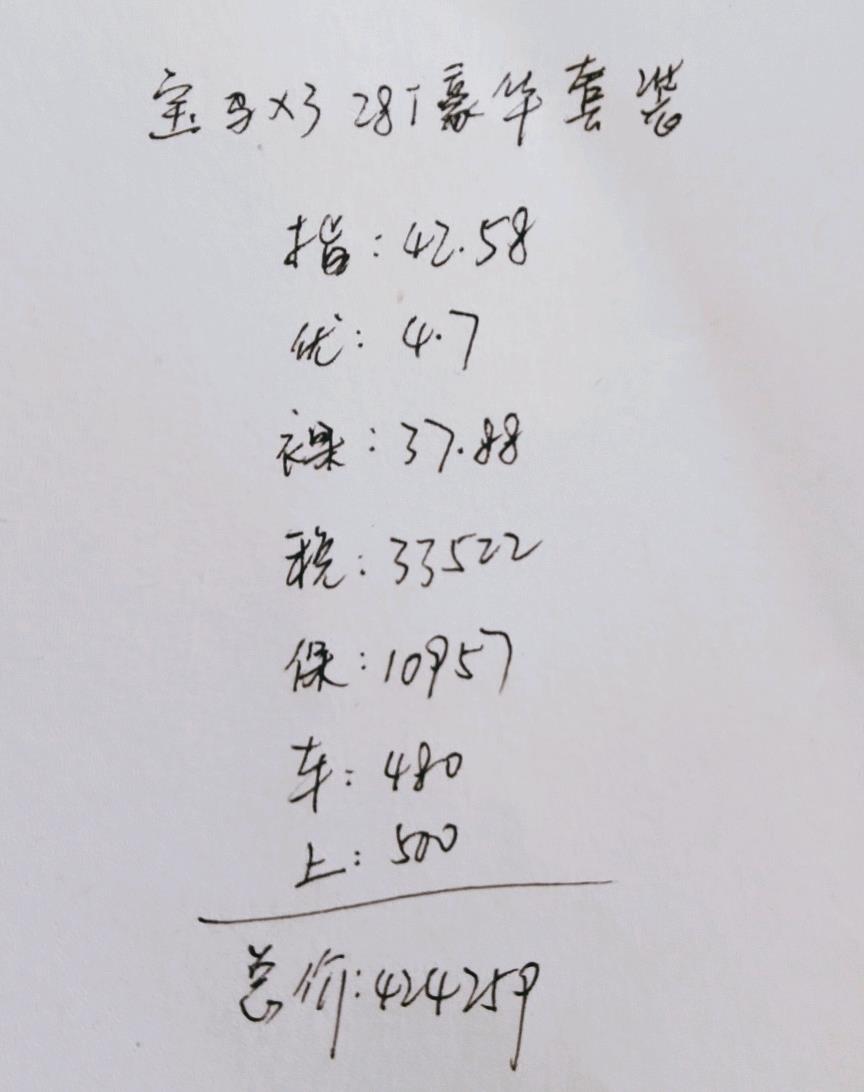 宝马X3 28i豪华套装
指:42.58
优:4.7
裸:37.88
税:33522
保:10957
车:480
上:500
总价:424259